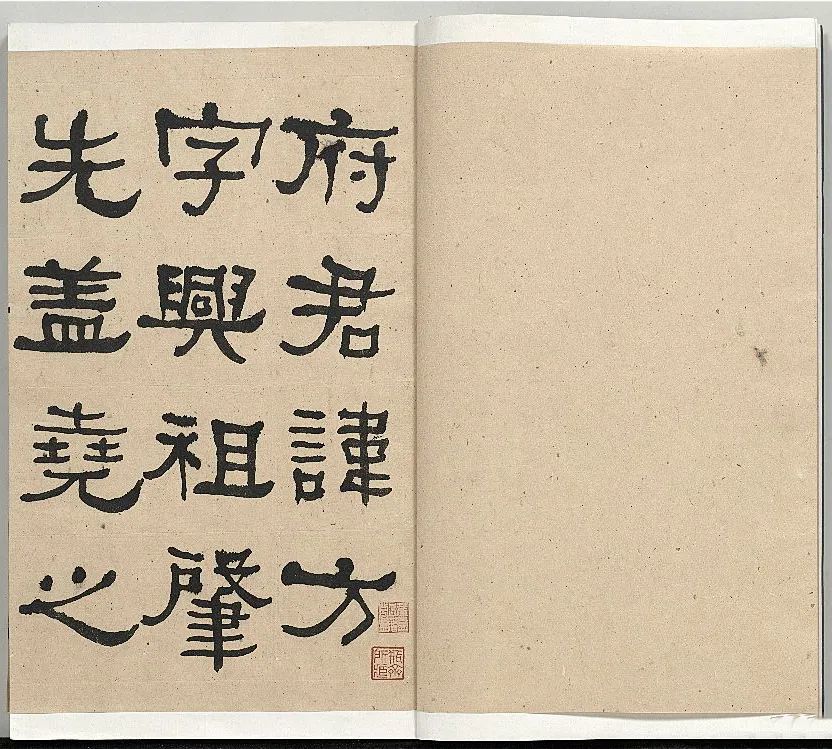 府君諱方
字興祖肇
先盖堯之